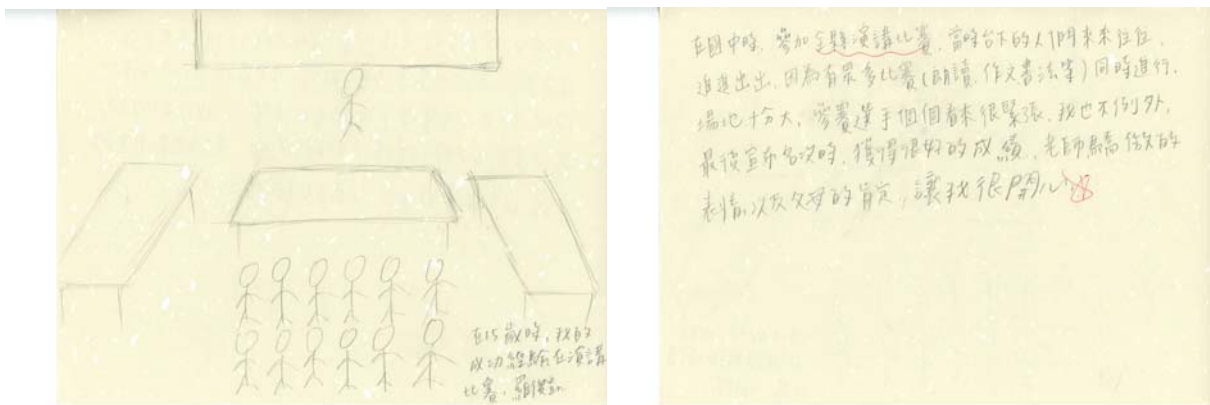 在15歲時，我的
成功經驗在演講
比賽，羅
在國中時，參加全縣演講比賽，當時台下的人們來來往往，
進進出出，因為有眾多比賽(朗讀、作文書法等)同時進行，
場地十分大，參賽選手個個看來很緊張，我也不例外，
最後宣布名次時，獲得很好的成績，老師驕傲的
表情以及父母的肯定，讓我很開心